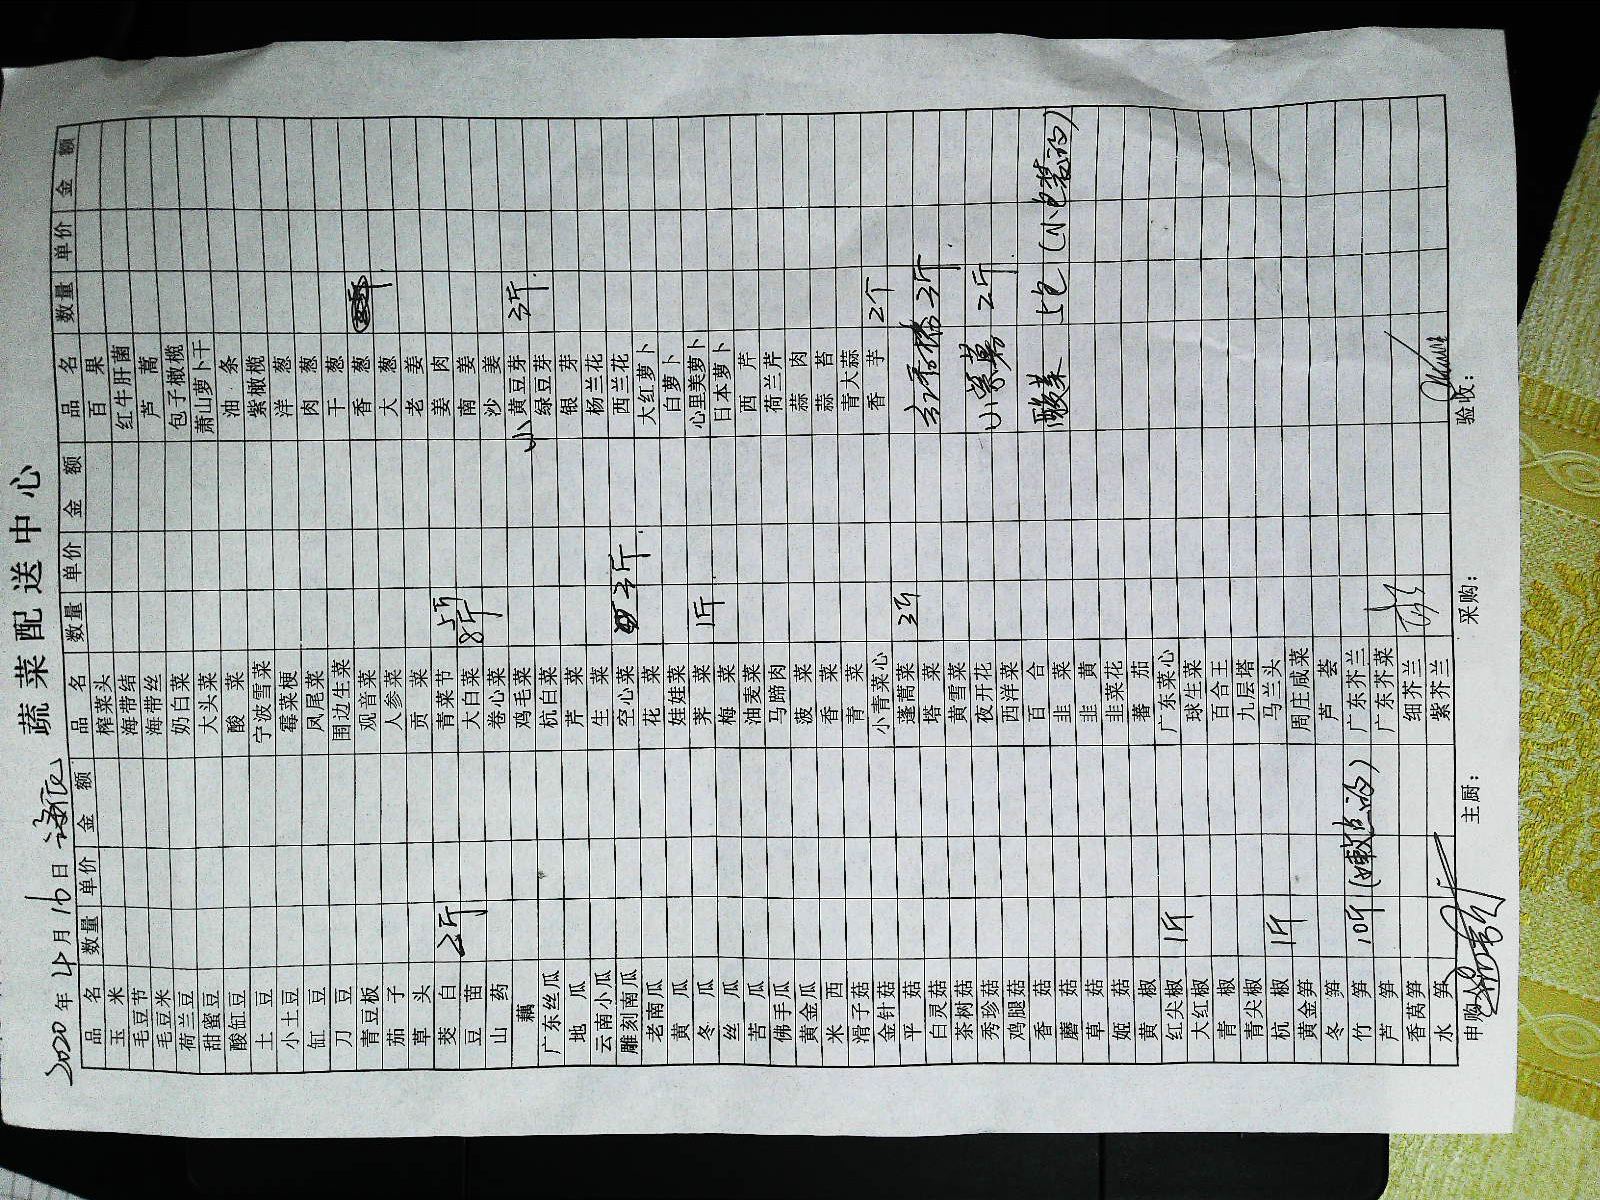 蔬菜配送中心
2020年4月16日
品名 数量 单价 金额 品名 数量 单价 金额 品名 数量 单价 金额
玉米 榨菜头 百果
毛豆节 海带结 红牛肝菌
毛豆米 海带丝 芦蒿
荷兰豆 奶白菜 包子橄榄
甜蜜豆 大头菜 萧山萝卜干
酸缸豆 酸菜 油条
土豆 宁波雪菜 紫橄榄
小土豆 霉菜梗 洋葱
缸豆 凤尾菜 肉葱
刀豆 围边生菜 干葱
青豆板 观音菜 香葱
茄子 人参菜 大葱
草头 贡菜 老姜
茭白 2斤 青菜节 5斤 姜肉
豆苗 大白菜 8斤 南姜
山药 卷心菜 沙姜
藕 鸡毛菜 小黄豆芽 3斤
广东丝瓜 杭白菜 绿豆芽
地瓜 芹菜 银芽
云南小瓜 生菜 杨兰花
雕刻南瓜 空心菜 3斤 西兰花
老南瓜 花菜 大红萝卜
黄瓜 娃娃菜 白萝卜
冬瓜 荠菜 1斤 心里美萝卜
丝瓜 梅菜 日本萝卜
苦瓜 油麦菜 西芹
佛手瓜 马蹄肉 荷兰芹
黄金瓜 菠菜 蒜肉
米西 香菜 蒜苔
滑子菇 青菜 青大蒜
金针菇 小青菜心 香芋 2个
平菇 蓬蒿菜 3斤
白灵菇 塔菜 3斤
茶树菇 黄雪菜
秀珍菇 夜开花 2斤
鸡腿菇 西洋菜
香菇 百合
蘑菇 韭菜 酸菜 5包(小包装的)
草菇 韭黄
姬菇 韭菜花
黄椒 蕃茄
红尖椒 1斤 广东菜心
大红椒 球生菜
青椒 百合王
青尖椒 九层塔
杭椒 1斤 马兰头
黄金笋 周庄咸菜
冬笋 芦荟
竹笋 10斤(嫩点的) 广东芥兰
芦笋 广东芥菜
香莴笋 细芥兰
水笋 紫芥兰
申购: 主厨: 采购: 验收: